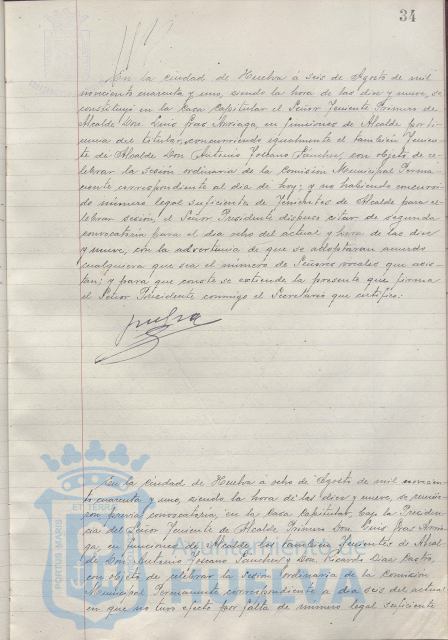 34
En la ciudad de Huelva á seis de Agosto de mil
novecientos cuarenta y uno, siendo la hora de las diez y nueve, se
constituyó en la Casa Capitular el Señor Teniente Primero de
Alcalde Don Luis Gras Arriaga, en funciones de Alcalde por li-
cencia del titular, concurriendo igualmente el también Tenien-
te de Alcalde Don Antonio Toscano Sánchez, con objeto de ce-
lebrar la sesión ordinaria de la Comisión Municipal Perma-
nente correspondiente al dia de hoy; y no habiendo concurri-
do número legal suficiente de Tenientes de Alcalde para ce-
lebrar sesión, el Señor Presidente dispuso citar de segunda
convocatoria para el dia ocho del actual y hora de las diez
y nueve, con la advertencia de que se adoptarán acuerdos
cualquiera que sea el número de Señores vocales que asis-
tan; y para que conste se extiende la presente que firma
el Señor Presidente conmigo el Secretario que certifico:
En la ciudad de Huelva á ocho de Agosto de mil novecien-
tos cuarenta y uno, siendo la hora de las diez y nueve, se reunie-
ron previa convocatoria, en la Casa Capitular, bajo la Presiden-
cia del Señor Teniente de Alcalde Primero Don Luis Gras Arria-
ga, en funciones de Alcalde, los también Tenientes de Alcal-
de Don Antonio Toscano Sánchez y Don Ricardo Dias Castro,
con objeto de celebrar la sesión ordinaria de la Comisión
Municipal Permanente correspondiente a dia seis del actual
en que no tuvo efecto por falta de número legal suficiente
PORTUS MARIS
ET TERRÆ
Ayuntamiento de
HUELVA